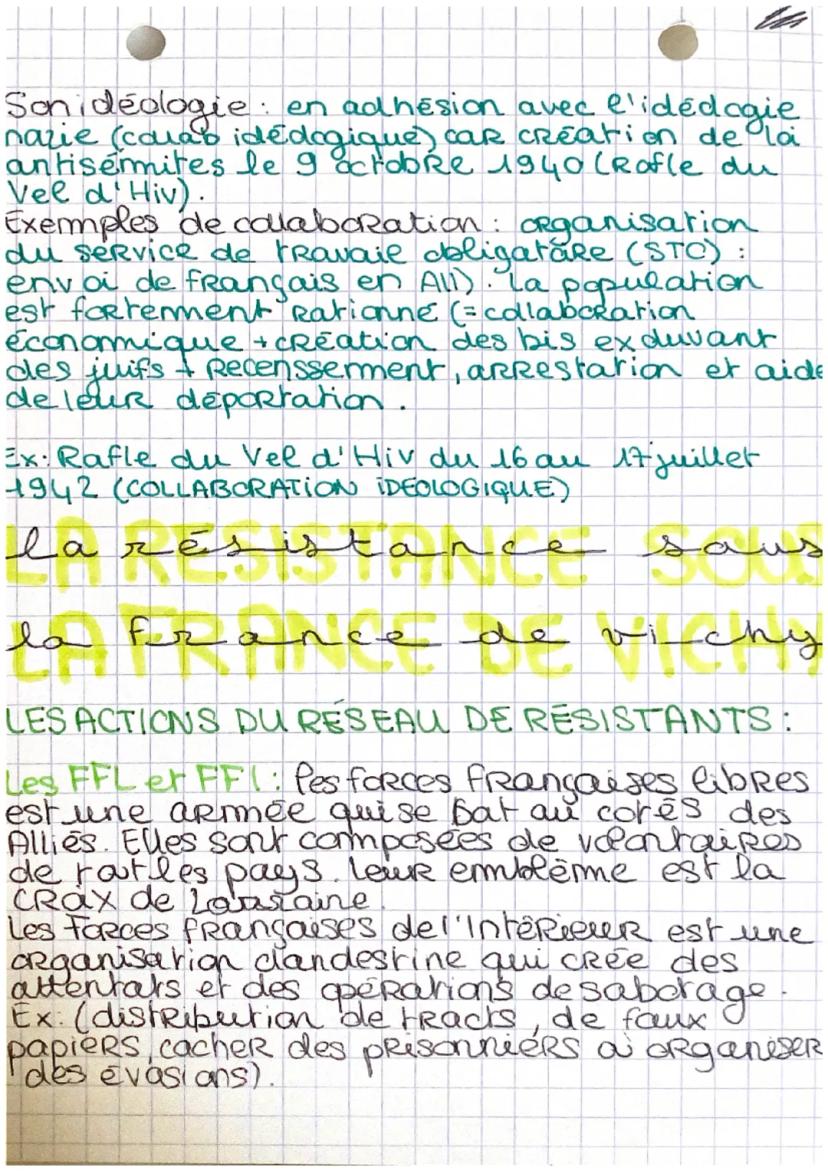 Son idéologie : en adhésion avec l'idéologie
nazie (collab idéologique) car création de loi
antisémites le 9 octobre 1940 (Rafle du
Vel d'Hiv).
Exemples de collaboration : organisation
du service de travaie obligatoire (STO) :
envoi de français en All). La population
est fortement rationné (= collaboration
économique + création des lois excluvant
des juifs + recenssement, arrestation et aide
de leur déportation.
Ex: Rafle du Vel d'Hiv du 16 au 17 juillet
1942 (COLLABORATION iDEOLOGIQUE)
la résistance sous
la france de vichy
LES ACTIONS DU RÉSEAU DE RÉSISTANTS :
Les FFL et FFI : les forces françaises libres
est une armée qui se bat au cotés des
Alliés. Elles sont composées de volontaires
de tout les pays. Leur emblème est la
croix de Lorraine.
Les forces françaises de l'Intérieur est une
organisation clandestine qui crée des
attentats et des opérations de sabotage.
Ex: (distribution de tracts, de faux
papiers, cacher des prisonniers ou organiser
des évasions).